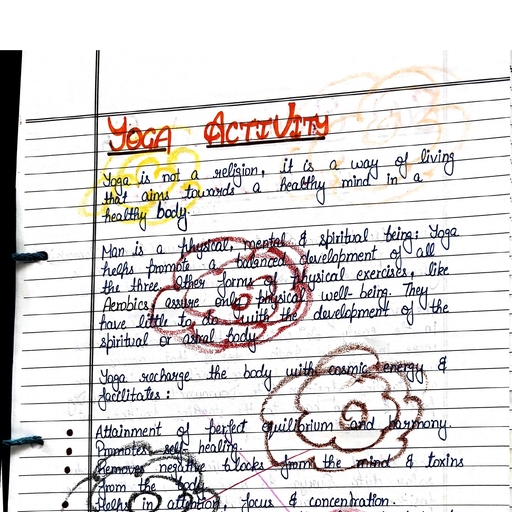 YOGA ACTIVITY
Yoga is not a religion, it is a way of living
that aims towards a healthy mind in a
healthy body.
Man is a physical, mental & spiritual being; Yoga
helps promote a balanced development of all
the three. Other forms of physical exercises, like
Aerobics, assure only physical well-being. They
have little to do with the development of the
spiritual or astral body.
Yoga recharge the body with cosmic energy &
facilitates:
• Attainment of perfect equilibrium and harmony.
• Promotes self healing.
• Removes negative blocks from the mind & toxins
from the body.
• Helps in attention, focus & concentration.